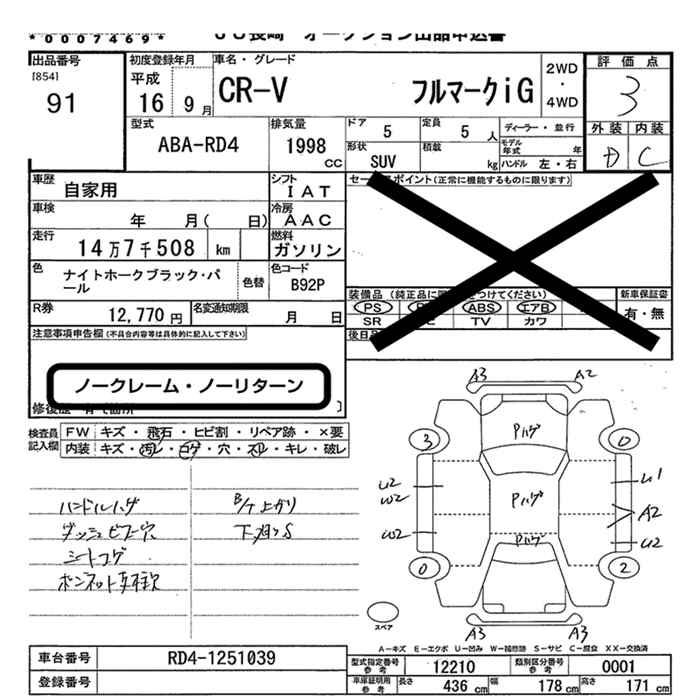 *0007469* JU長崎 オークション出品申込書
出品番号 初度登録年月 車名・グレード 評価点
[854] 平成 2WD
91 16 9月 CR-V フルマークiG ・ 3
4WD
型式 排気量 ドア 5 定員 5人 ディーラー・並行 外装 内装
ABA-RD4 1998 CC 形状 SUV 積載 kg モデル年式 年 D C
ハンドル 左・右
車歴 自家用 シフト IAT セールスポイント(正常に機能するものに限ります)
車検 年 月( 日) 冷房 AAC
走行 14万7千508 km 燃料 ガソリン
色 ナイトホークブラック・パール 色替 色コード B92P
装備品 (純正品に つけてください) 新車保証書
PS ABS エアB 有・無
SR TV カワ
R券 12,770円 名変通知期限 月 日
後日
注意事項申告欄(不具合内容等は具体的に記入して下さい)
ノークレーム・ノーリターン
修復歴 有
検査員記入欄 FW キズ・飛石・ヒビ割・リペア跡・×要
内装 キズ・汚レ・コゲ・穴・スレ・キレ・破レ
ハンドルハゲ B/T上がり
ダッシュビス穴 下廻りS
シートコゲ
ボンネット
A3 A2
Pハゲ
3 0
U2 W2 U1
Pハゲ A2
W2 U2
Pハゲ
0 2
スペア A3 A3
A-キズ E-エクボ U-凹み W-補修跡 S-サビ C-腐食 XX-交換済
車台番号 RD4-1251039 型式指定番号 参考 12210 類別区分番号 参考 0001
登録番号 車庫証明用 参考 長さ 436 cm 幅 178 cm 高さ 171 cm